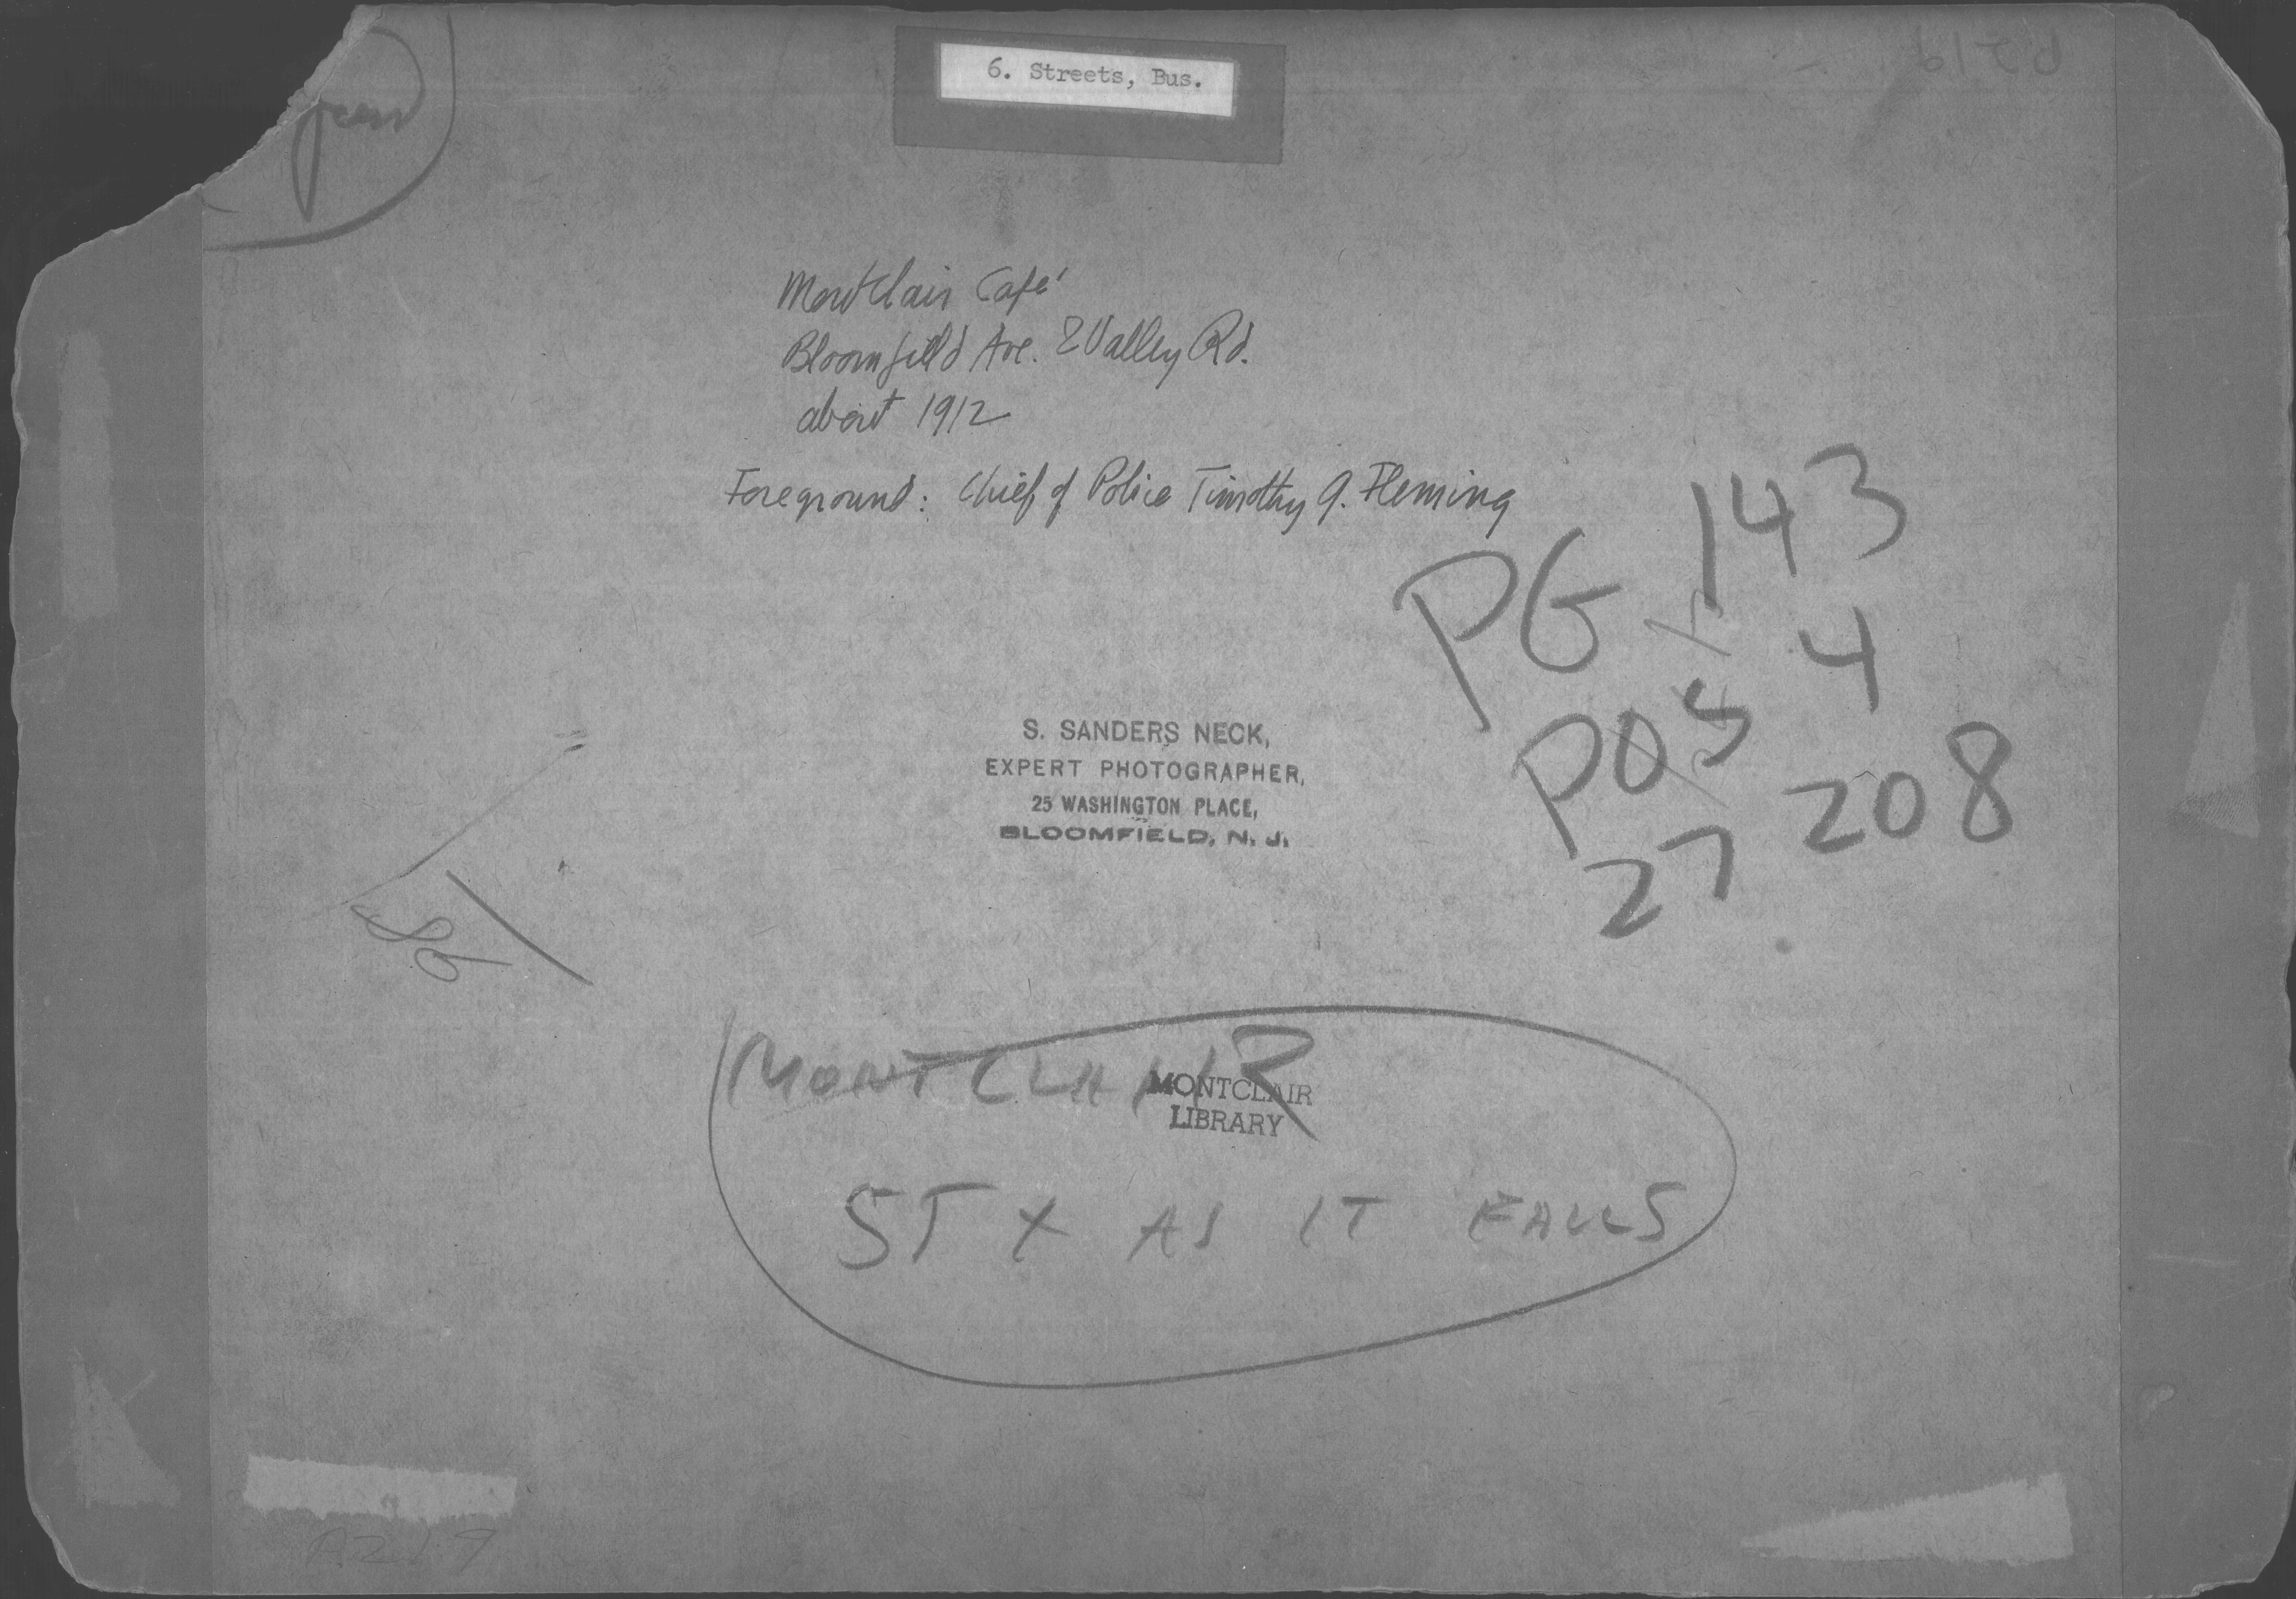 6. Streets, Bus.
Montclair Café
Bloomfield Ave. & Valley Rd.
about 1912
Foreground: Chief of Police Timothy J. Fleming
PG 143
4
POS
208
27
S. SANDERS NECK,
EXPERT PHOTOGRAPHER,
25 WASHINGTON PLACE,
BLOOMFIELD, N. J.
MONTCLAIR
MONTCLAIR
LIBRARY
ST X AS IT FALLS